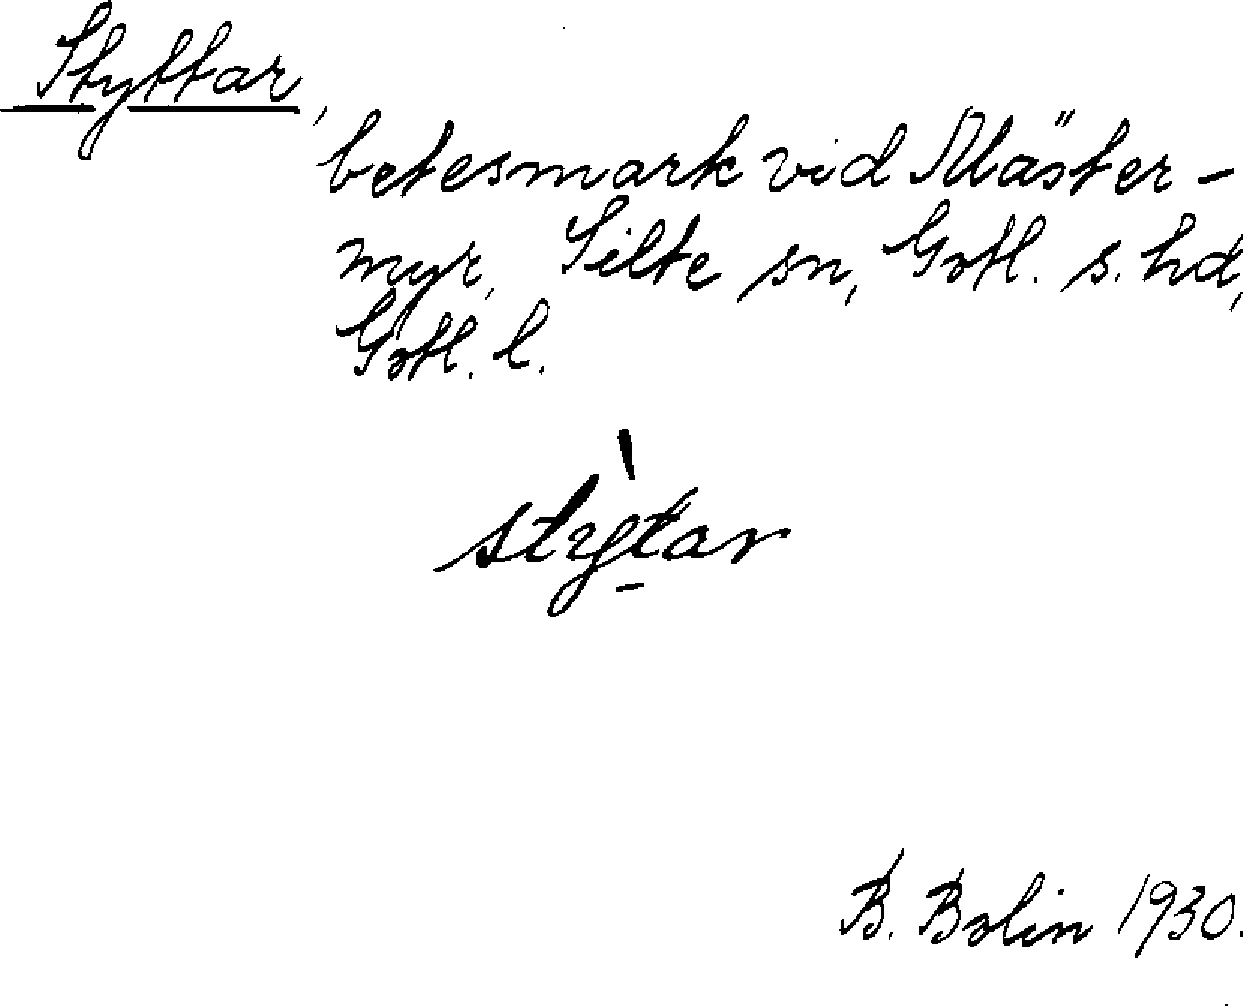 Styttar,
betesmark vid Mäster-
myr, Silte sn, Gotl. s. hd,
Gotl. l.
stytar
B. Bolin 1930.